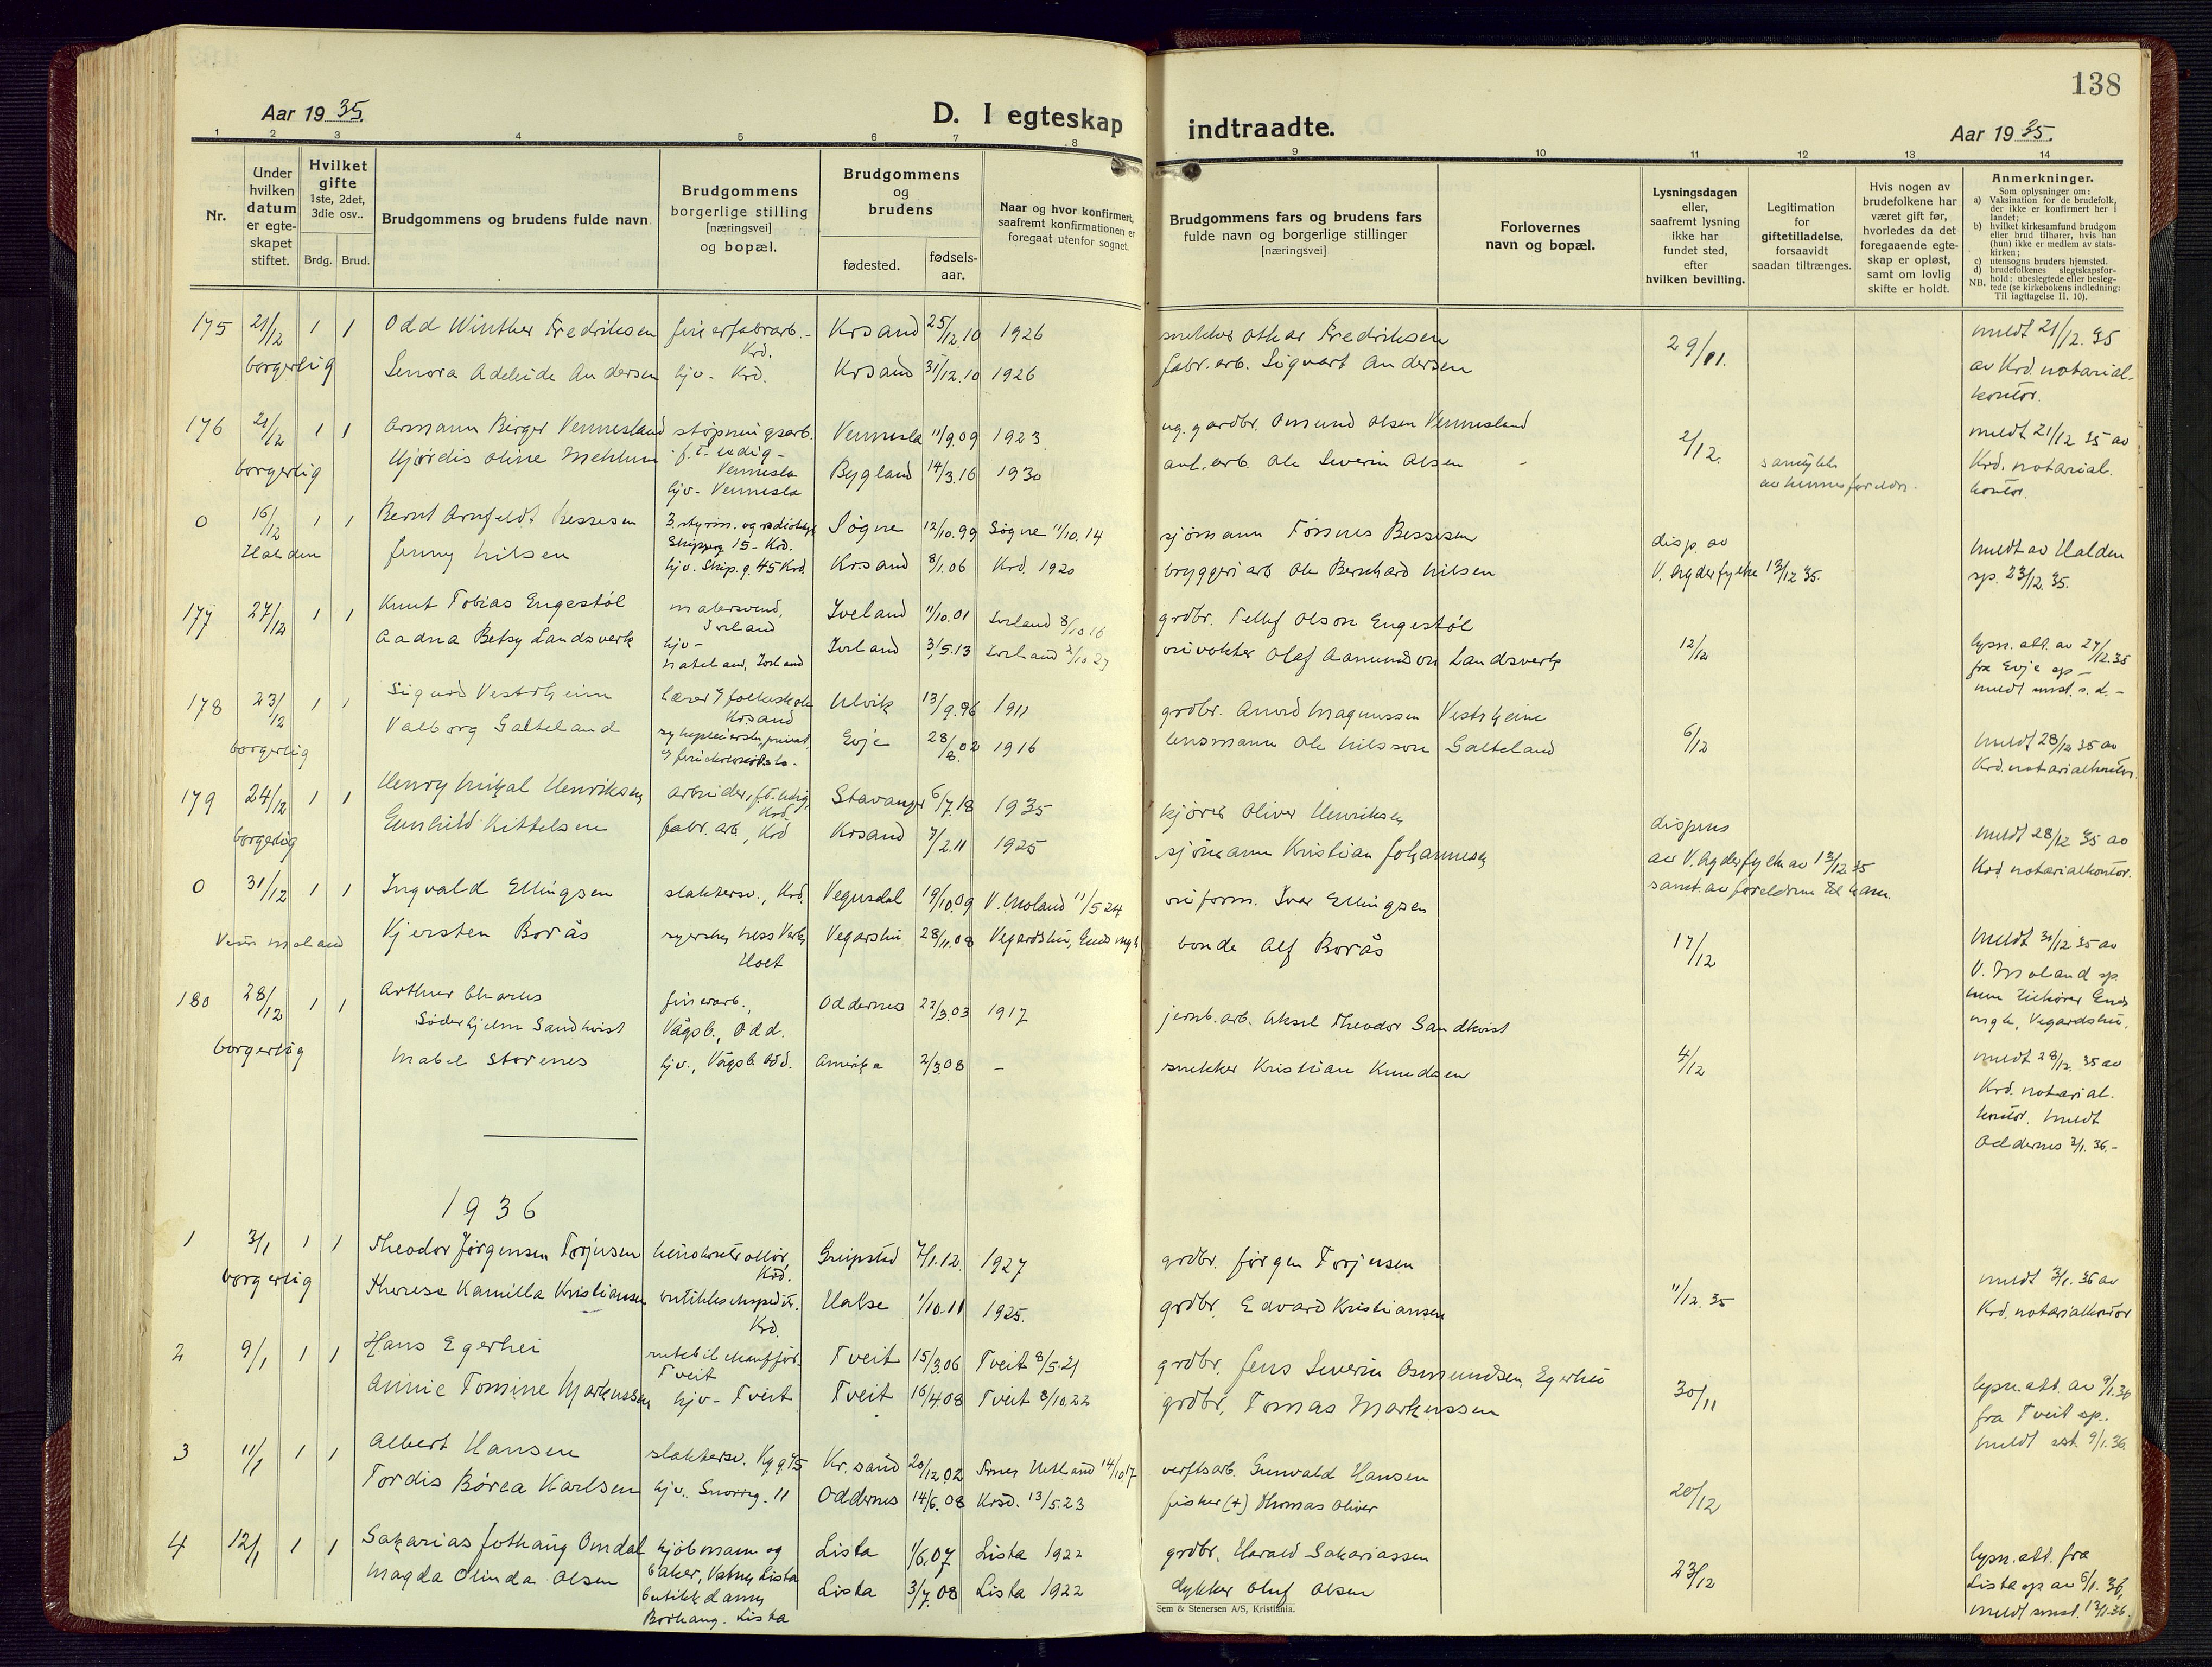 138
Aar 1935.
D. I egteskap indtraadte.
Aar 1935.
1 2 3 4 5 6 7 8 9 10 11 12 13 14
Nr.
Under hvilken datum er egteskapet stiftet.
Hvilket gifte 1ste, 2det, 3die osv..
Brdg. Brud.
Brudgommens og brudens fulde navn
Brudgommens borgerlige stilling [næringsvei] og bopæl.
Brudgommens og brudens
fødested.
fødselsaar.
Naar og hvor konfirmert, saafremt konfirmationen er foregaat utenfor sognet.
Brudgommens fars og brudens fars fulde navn og borgerlige stillinger [næringsvei]
Forlovernes navn og bopæl.
Lysningsdagen eller, saafremt lysning ikke har fundet sted, efter hvilken bevilling.
Legitimation for giftetilladelse, forsaavidt saadan tiltrænges.
Hvis nogen av brudefolkene har været gift før, hvorledes da det foregaaende egteskap er opløst, samt om lovlig skifte er holdt.
Anmerkninger.
Som oplysninger om:
a) Vaksination for de brudefolk, der ikke er konfirmert her i landet;
b) hvilket kirkesamfund brudgom eller brud tilhører, hvis han (hun) ikke er medlem av statskirken;
c) utensogns bruders hjemsted.
d) brudefolkenes slegtskapsforhold: ubeslegtede eller beslegtede (se kirkebokens indledning: Til iagttagelse II. 10).
NB.
175 21/12 1 1 Odd Winther Fredriksen finerfabrarb. - Krd. Krsand 25/12.10 1926 snekker Othar Fredriksen 29/11. meldt 21/12.35
borgerlig Lenora Adeleide Andersen hjv - Krd. Krsand 31/12.10 1926 fabr.arb. Sigvart Andersen av Krd. notarial-
kontor.
176 21/12 1 1 Armann Birger Vennesland støpningsarb. Vennesla 11/9.09 1923 ug. gardbr. Omund Olsen Vennesland 2/12. meldt 21/12 35 av
borgerlig Hjørdis Oline Mehlum f.t. ledig - Vennesla Bygland 14/3.16 1930 anl.arb. Ole Severin Olsen - samtykke Krd. notarial.
hjv - Vennesla av hennes foreldre. kontor.
0 16/12 1 1 Bernt Arnfeldt Bessesen 3. styrm. og radioteleg. Søgne 12/10.99 Søgne 11/10.14 sjømann Tønnes Bessesen disp. av meldt av Halden
Halden Jenny Nilsen Skipperg 15 - Krd. hjv. Skip.g. 45 Krd. Krsand 8/1.06 Krd. 1920 bryggeriarb Ole Bernhard Nilsen V. Agderfylke 13/12 35. sp. 23/12.35.
177 27/12 1 1 Knut Tobias Engestøl malersvend, Iveland Iveland 11/10.01 Iveland 8/10 16 grdbr. Tellef Olson Engestøl
Aadna Betsy Landsverk hjv - Hateland, Iveland Iveland 3/5.13 Iveland 2/10 27 veivokter Olaf Aamundson Landsverk 12/12 lysn.att. av 27/12.35
fra Evje sp -
meldt mst. s.d. -
178 23/12 1 1 Sigurd Vestrheim lærer v folkeskole Krsand Ulvik 13/9.96 1911 grdbr. Anved Magnussen Vestrheim
borgerlig Valborg Galteland sykepleierske, privat, Evje 28/8.02 1916 lensmann Ole Nilsson Galteland 6/12 meldt 28/12 35 av
Krd. notarialkontor.
179 24/12 1 1 Henry Mikal Henriksen arbeider, f.t. ledig, Krd Stavanger 6/7.18 1935 kjører Oliver Henriksen dispens meldt 28/12 35 av
borgerlig Gunhild Kittelsen fabr. arb., Krd Krsand 7/2.11 1925 sjømann Kristian Johannesen av V. Agderfylke av 13/12 35 Krd. notarialkontor.
samt. av foreldrene til ham.
0 31/12 1 1 Ingvald Ellingsen slaktersv., Krd. Vegusdal 19/10.09 V. Moland 11/5 24 veiform. Iver Ellingsen
Vestre Moland Kjersten Borås syerske, Ness Verk, Holt Vegårshei 28/11.08 Vegårdshei, Eneds mgh bonde Alf Borås 17/12 meldt 31/12 35 av
V. Moland sp
180 28/12 1 1 Arthur Charles finerarb., Oddernes 22/3.03 1917
Søderhjelm Sandkvist Vågsb., Odd. jernb.arb. Aksel Theodor Sandkvist mgh, Vegårdshei.
borgerlig Mabel Storenes hjv., Vågsb. Odd. Amerika 2/3.08 - snekker Kristian Knudsen 4/12 meldt 28/12. 35 av
Krd. notarial.
kontor. meldt
Oddernes 2/1.36.-
1936
1 3/1 1 1 Theodor Jørgensen Torjusen Krd. Greipstad 7/1.12. 1927 grdbr. Jørgen Torjusen
borgerlig Therese Kamilla Kristiansen butikkekspeditr. Krd. Halse 1/10.11 1925. grdbr. Edvard Kristiansen 11/12.35 meldt 3/1.36 av
Krd. notarialkontor
2 9/1 1 1 Hans Egerhei rutebilchauffør Tveit Tveit 15/3.06 Tveit 8/5.21 grdbr. Jens Severin Asmundsen Egerhei
Annie Tomine Markussen hjv - Tveit Tveit 16/4.08 Tveit 8/10.22 grdbr. Tomas Markussen 30/11 lysn.att. av 9/1.36
fra Tveit sp.
meldt mst. 9/1.36.
3 11/1 1 1 Albert Hansen slaktersv. Kg g 45 Kr.sand 20/12.02 14/10.17 verftsarb. Gunvald Hansen
Tordis Børea Karlsen hjv. Snorreg. 11 Oddernes 14/6.08 Krsd. 13/5.23 fisker (+) Thomas Oliver 20/12
4 12/1 1 1 Sakarias Jothang Omdal kjøbmann og Lista 1/6.07 Lista 1922 grdbr. Harald Sakariassen
Magda Olinda Olsen baker, Vatne, Lista Lista 3/7.08 Lista 1922 dykker Oluf Olsen 23/12 lysn.att. fra
butikkdame Lista sp av 6/1.36,
Borhaug. Lista meldt mst. 13/1.36.
Sem & Stenersen A/S, Kristiania.